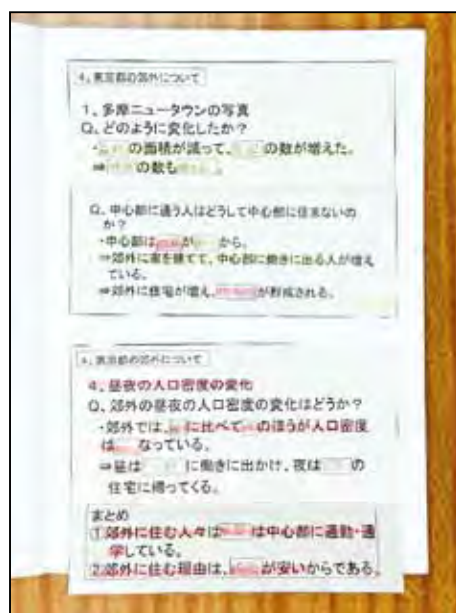 4、東京都の郊外について
1、多摩ニュータウンの写真
Q、どのように変化したか？
・の面積が減って、の数が増えた。
⇒の数も。
Q、中心部に通う人はどうして中心部に住まないの
か？
・中心部はがから。
⇒郊外に家を建てて、中心部に働きに出る人が増え
ている。
⇒郊外に住宅が増え、が形成される。
4、東京都の郊外について
4、昼夜の人口密度の変化
Q、郊外の昼夜の人口密度の変化はどうか？
・郊外では、に比べてのほうが人口密度
はなっている。
⇒昼はに働きに出かけ、夜はの
住宅に帰ってくる。
まとめ
①郊外に住む人々はは中心部に通勤・通
学している。
②郊外に住む理由は、が安いからである。